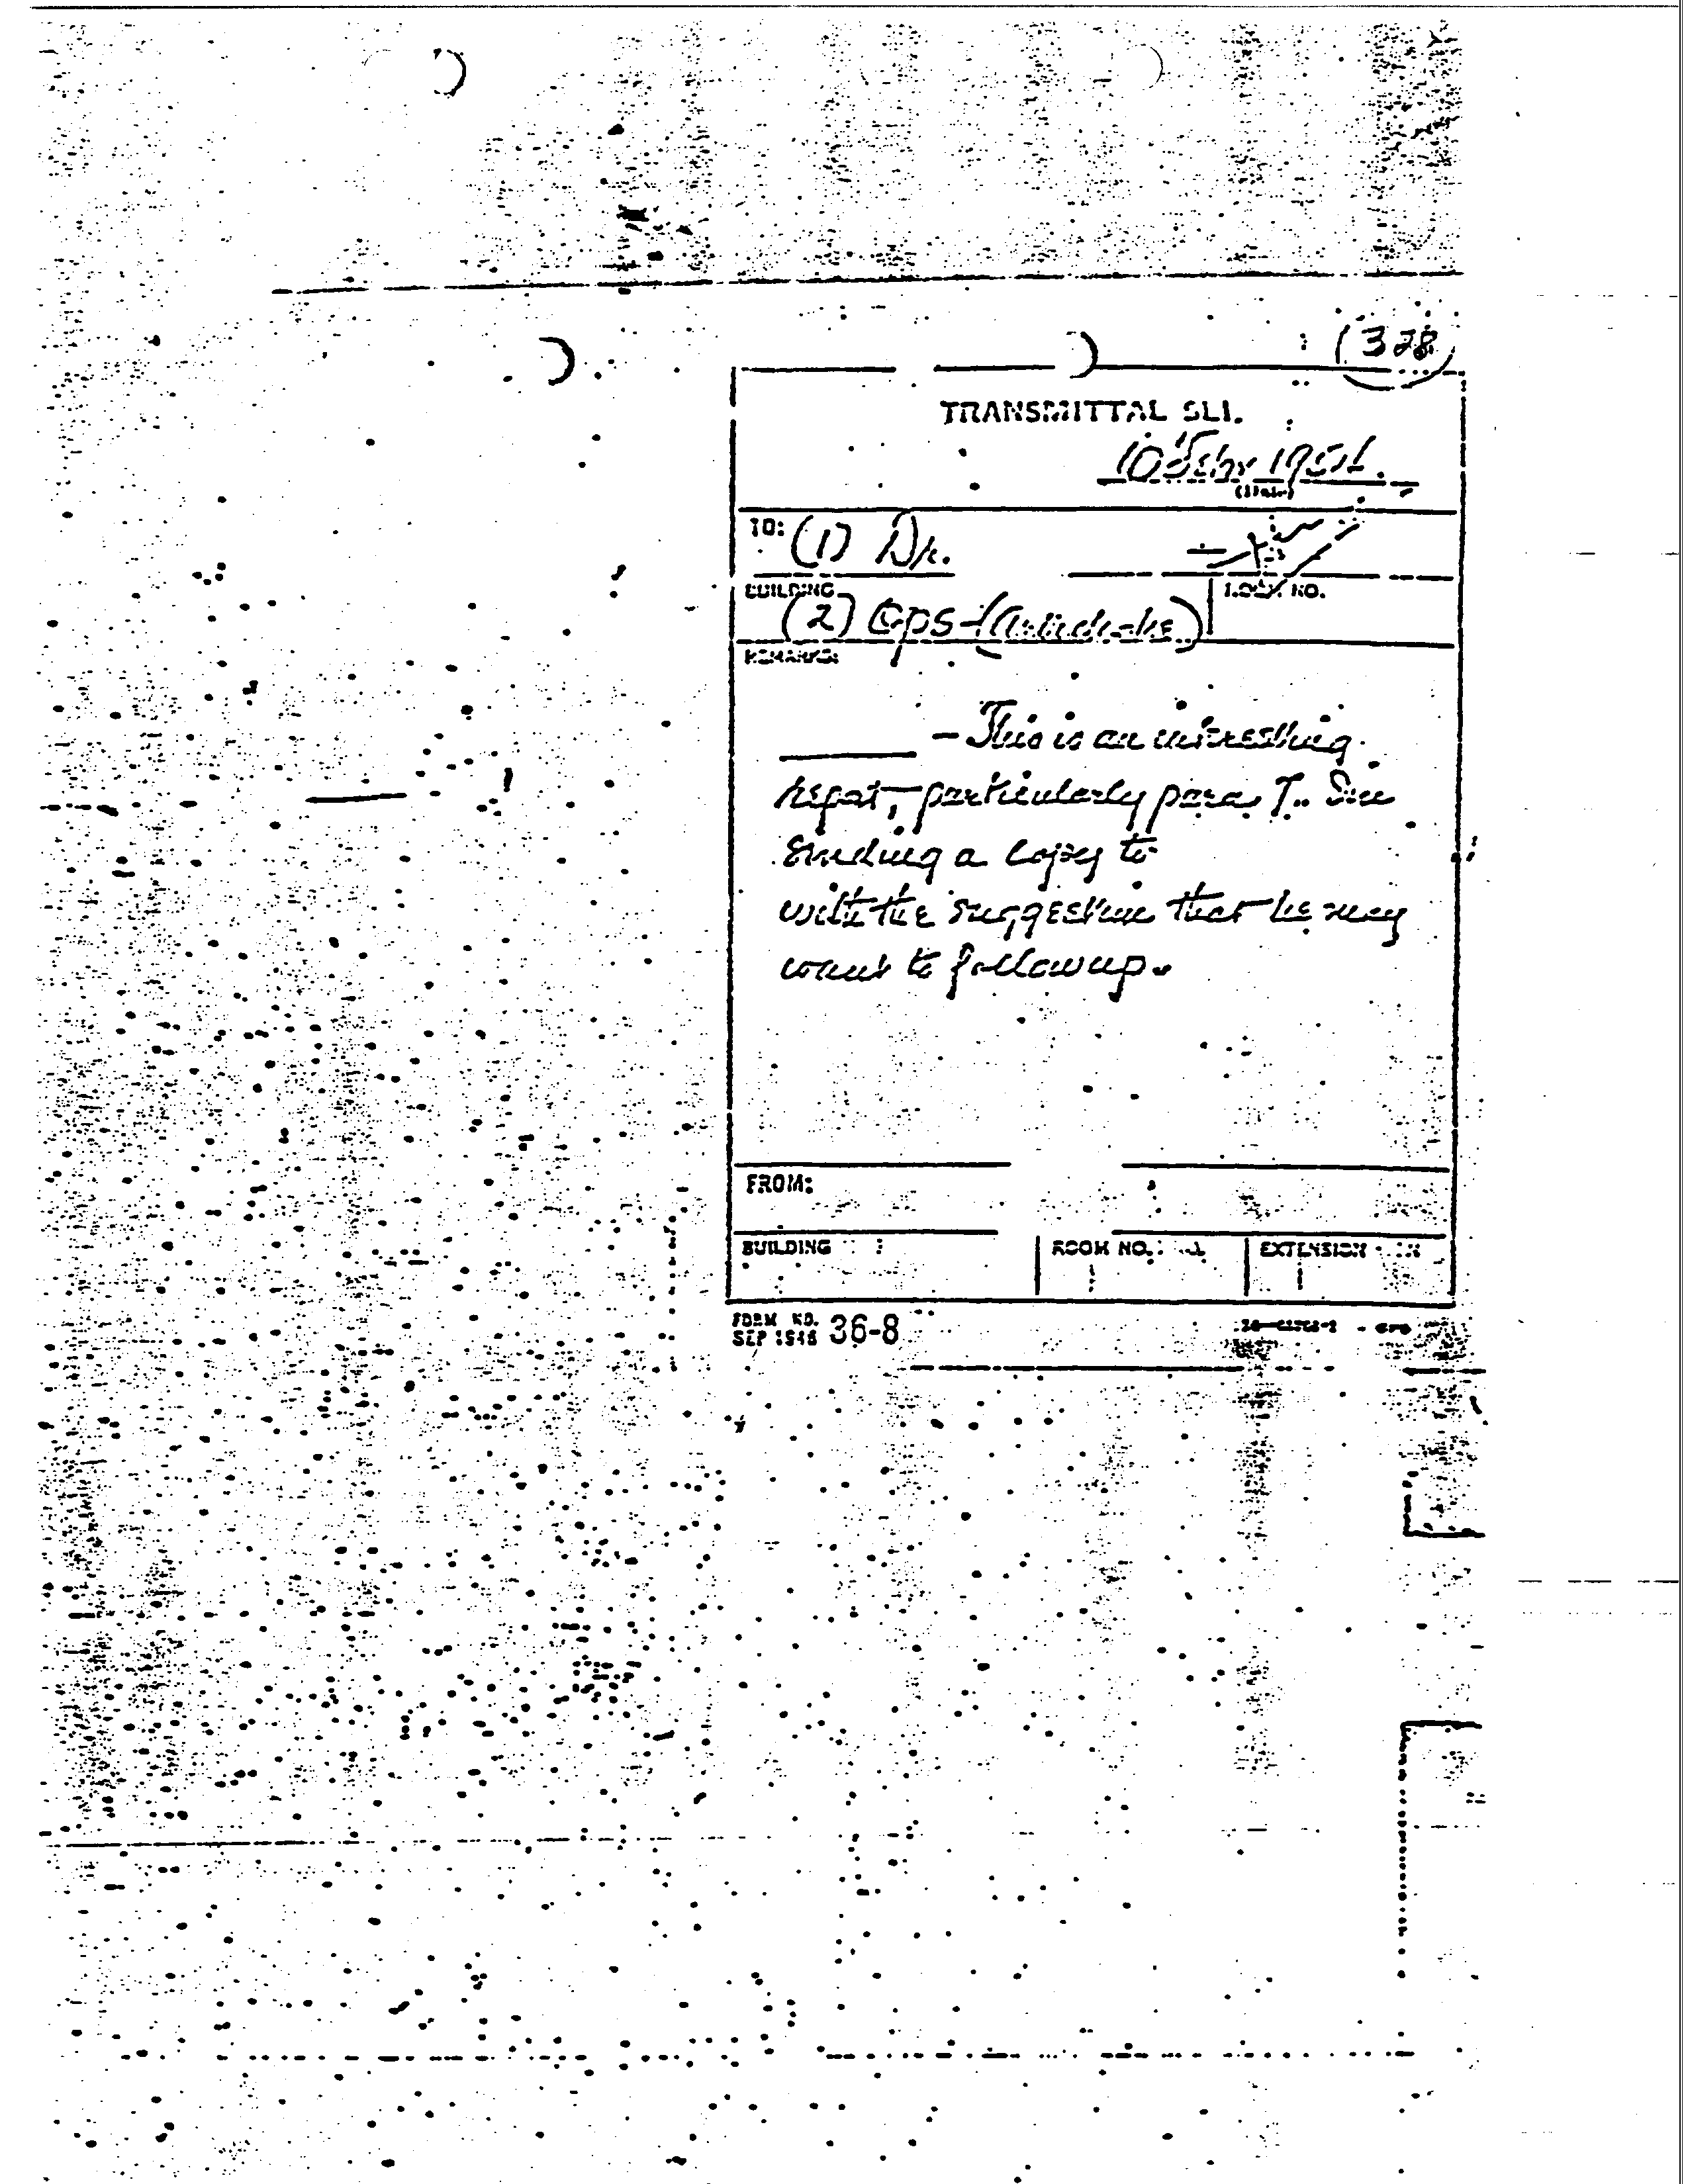 (328)
TRANSMITTAL SLI.
1951.
(Date)
TO: (1) Dr.
BUILDING ROOM NO.
(2) Ops-(
REMARKS:
- This is an interesting
report, particularly para 7.
Sending a copy to
with the suggestion that he may
want to follow up.
FROM:
BUILDING ROOM NO. EXTENSION
FORM NO.
SEP 1946 36-8
GPO